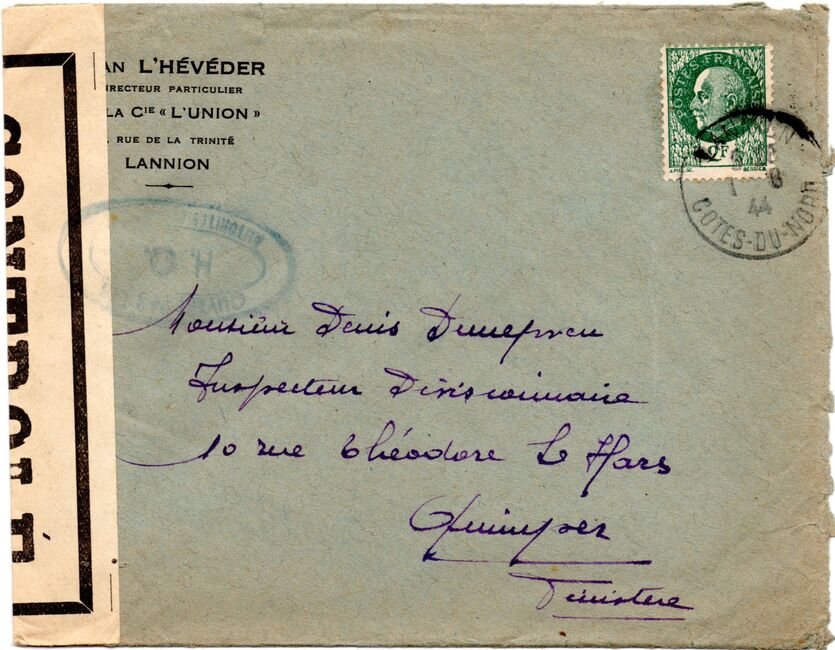 AN L'HÉVÉDER
IRECTEUR PARTICULIER
LA CIE « L'UNION »
RUE DE LA TRINITÉ
LANNION
POSTES FRANÇAISES
2F
BERSIER
LANNION
1 8
44
COTES-DU-NORD
H.O.
CONTROLE
Monsieur Denis
Inspecteur Divisionnaire
10 rue Théodore Le Hars
Quimper
Finistère